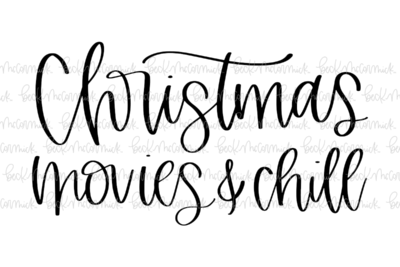 Christmas
movies & chill